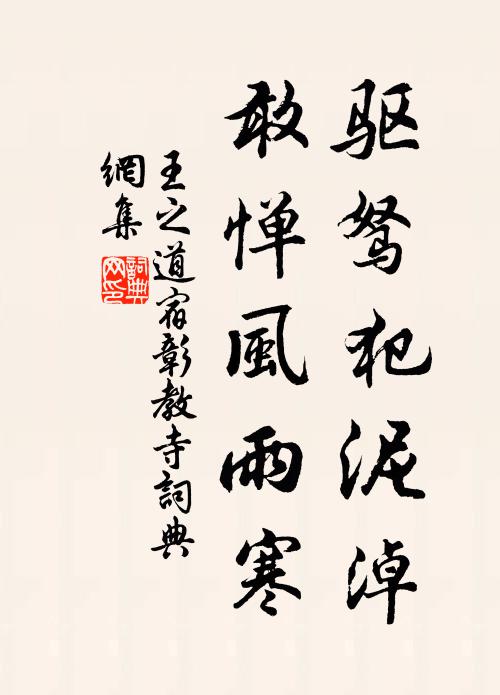 驱驽犯泥淖
敢惮風雨寒
王之道宿彰教寺詞典
網集
詞典
网印